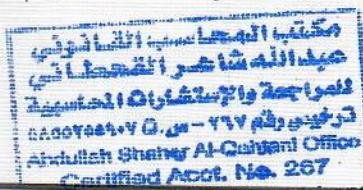 مكتب المحاسب القانوني
عبدالله شاهر القحطاني
للمراجعة والإستشارات المحاسبية
ترخيص رقم ٧٦٧ - س.
Abdullah Shaher Al-Qahtani Office
Certified Acct. No. 267